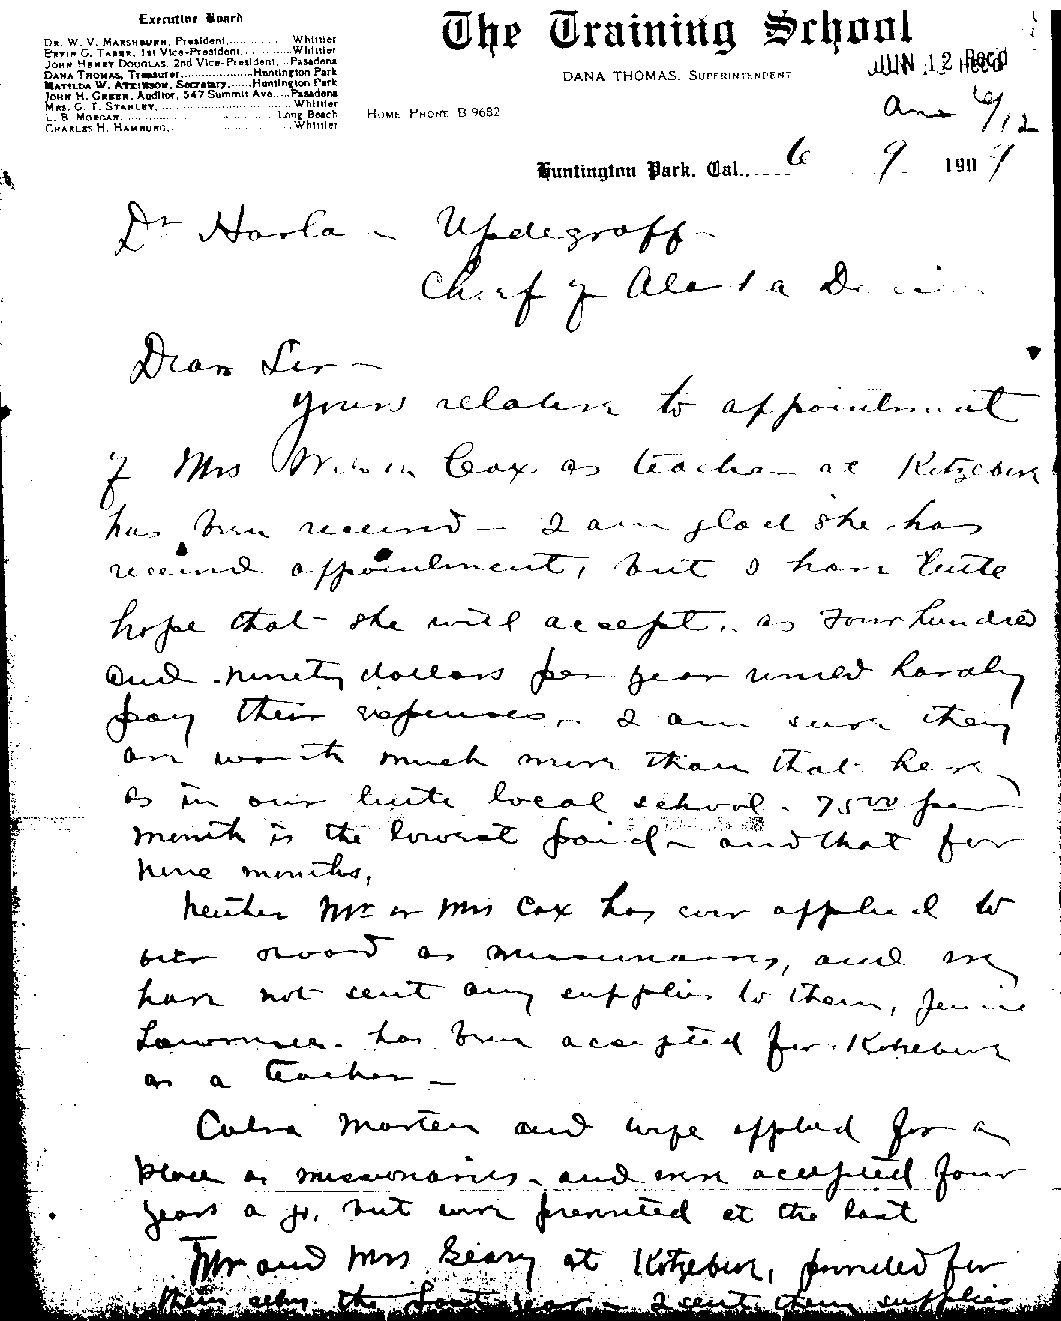 Executive Board
DR. W. V. MARSHBURN, President,............Whittier
ERVIN G. TABER, 1st Vice-President,............Whittier
JOHN HENRY DOUGLAS, 2nd Vice-President,...Pasadena
DANA THOMAS, Treasurer,............Huntington Park
MATILDA W. ATKINSON, Secretary,......Huntington Park
JOHN H. GREEN, Auditor, 547 Summit Ave.....Pasadena
MRS. G. T. STANLEY,............Whittier
L. B. MORGAN,............Long Beach
CHARLES H. HAMBURG,............Whittier
The Training School
DANA THOMAS, SUPERINTENDENT
JUN 12 REC'D
HOME PHONE B 9682
Ans 6/12
Huntington Park, Cal.,.....6 9 1909
Dr Harlan Updegraff
Chief of Alaska Division
Dear Sir
Yours relative to appointment
of Mrs Wilson Cox as teacher at Kotzebue
has been received - I am glad she has
received appointment, but I have little
hope that she will accept, as four hundred
and ninety dollars per year would hardly
pay their expenses. I am sure they
are worth much more than that here,
as in our little local school. 75 00 per
month is the lowest paid - and that for
nine months,
Neither Mr or Mrs Cox has ever applied to
our board as missionaries, and we
have not sent any supplies to them, Jennie
Lawrence has been accepted for Kotzebue
as a teacher -
Calvin and wife applied for a
place as missionaries, and were accepted four
years ago, but were prevented at the last
Mr and Mrs Geary at Kotzebue, provided for
the last year - I sent them supplies